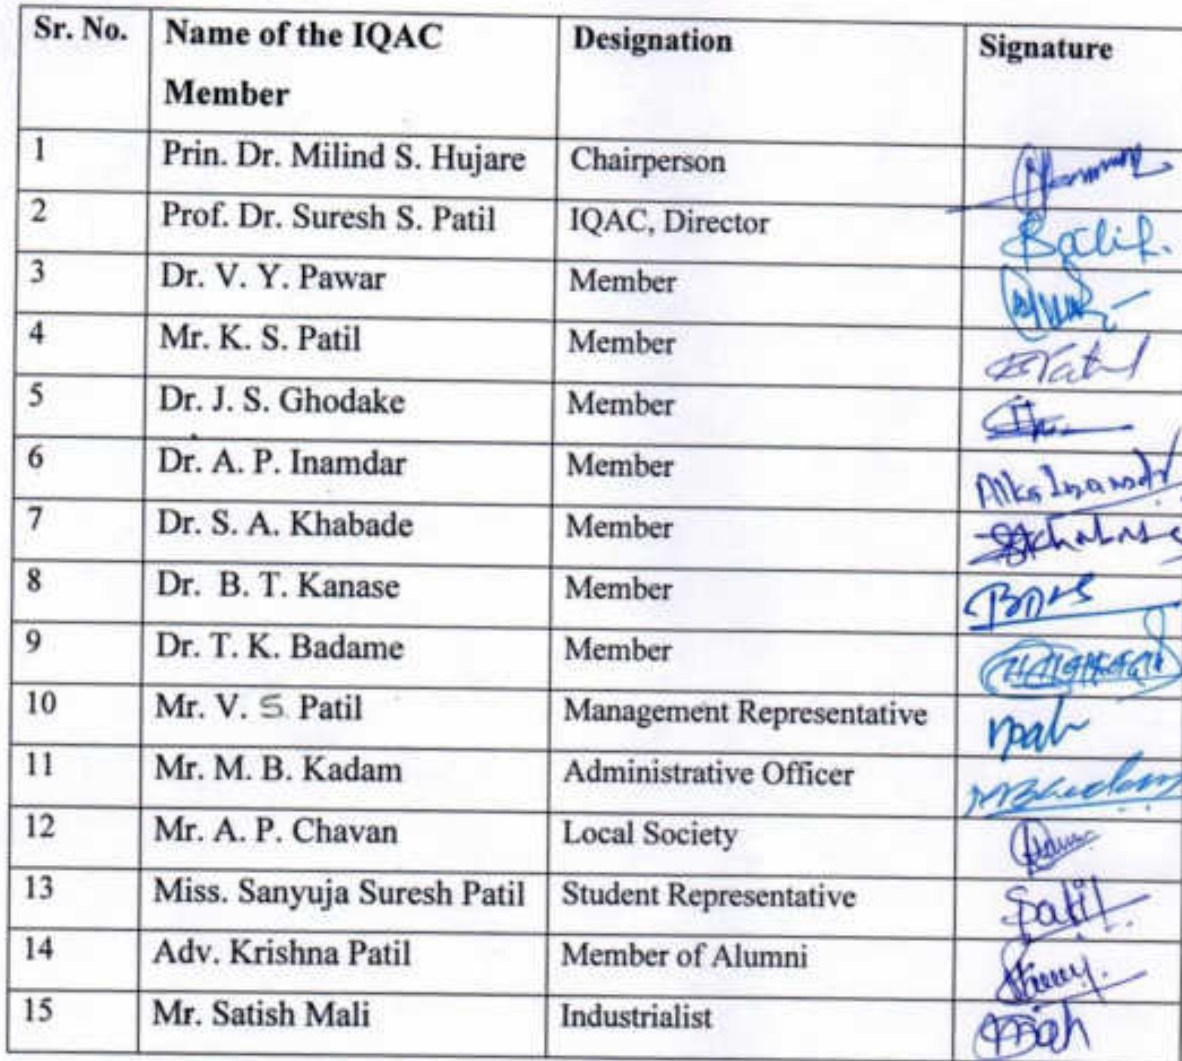 Sr. No. Name of the IQAC Designation Signature
Member
1 Prin. Dr. Milind S. Hujare Chairperson
2 Prof. Dr. Suresh S. Patil IQAC, Director
3 Dr. V. Y. Pawar Member
4 Mr. K. S. Patil Member
5 Dr. J. S. Ghodake Member
6 Dr. A. P. Inamdar Member
7 Dr. S. A. Khabade Member
8 Dr. B. T. Kanase Member
9 Dr. T. K. Badame Member
10 Mr. V. S. Patil Management Representative
11 Mr. M. B. Kadam Administrative Officer
12 Mr. A. P. Chavan Local Society
13 Miss. Sanyuja Suresh Patil Student Representative
14 Adv. Krishna Patil Member of Alumni
15 Mr. Satish Mali Industrialist